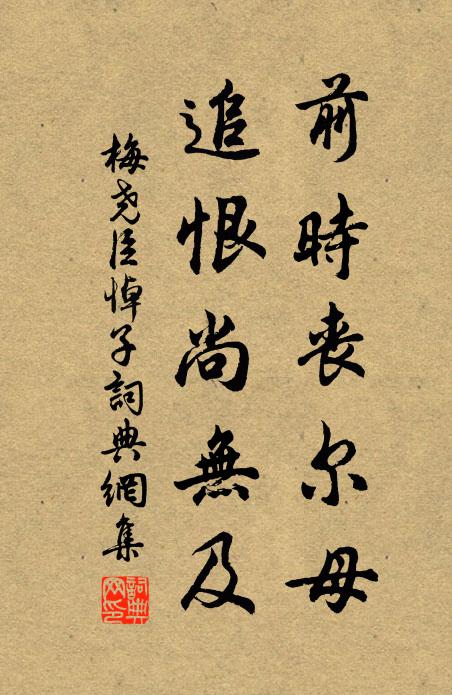 前時丧尔母
追恨尚無及
梅尧臣悼子詞典網集
詞典网印